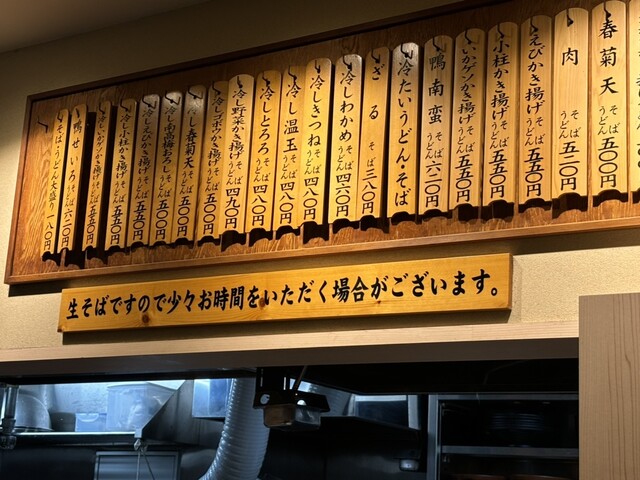 春菊天 そば うどん 五〇〇円
肉 そば うどん 五二〇円
えびかき揚げ そば うどん 五五〇円
小柱かき揚げ そば うどん 五五〇円
いかゲソかき揚げ そば うどん 五五〇円
鴨南蛮 そば うどん 六二〇円
冷たいうどん・そば
ざる そば 三八〇円
冷しわかめ そば うどん 四六〇円
冷しきつね そば うどん 四八〇円
冷し温玉 そば うどん 四八〇円
冷しとろろ そば うどん 四八〇円
冷し野菜かき揚げ そば うどん 四九〇円
冷しゴボウかき揚げ そば うどん 五〇〇円
冷し春菊天 そば うどん 五〇〇円
冷し南高梅おろし そば うどん 五〇〇円
冷しえびかき揚げ そば うどん 五五〇円
冷し小柱かき揚げ そば うどん 五五〇円
冷しいかゲソかき揚げ そば うどん 五五〇円
鴨せいろ そば うどん 六二〇円
そば・うどん大盛り 一八〇円
生そばですので少々お時間をいただく場合がございます。